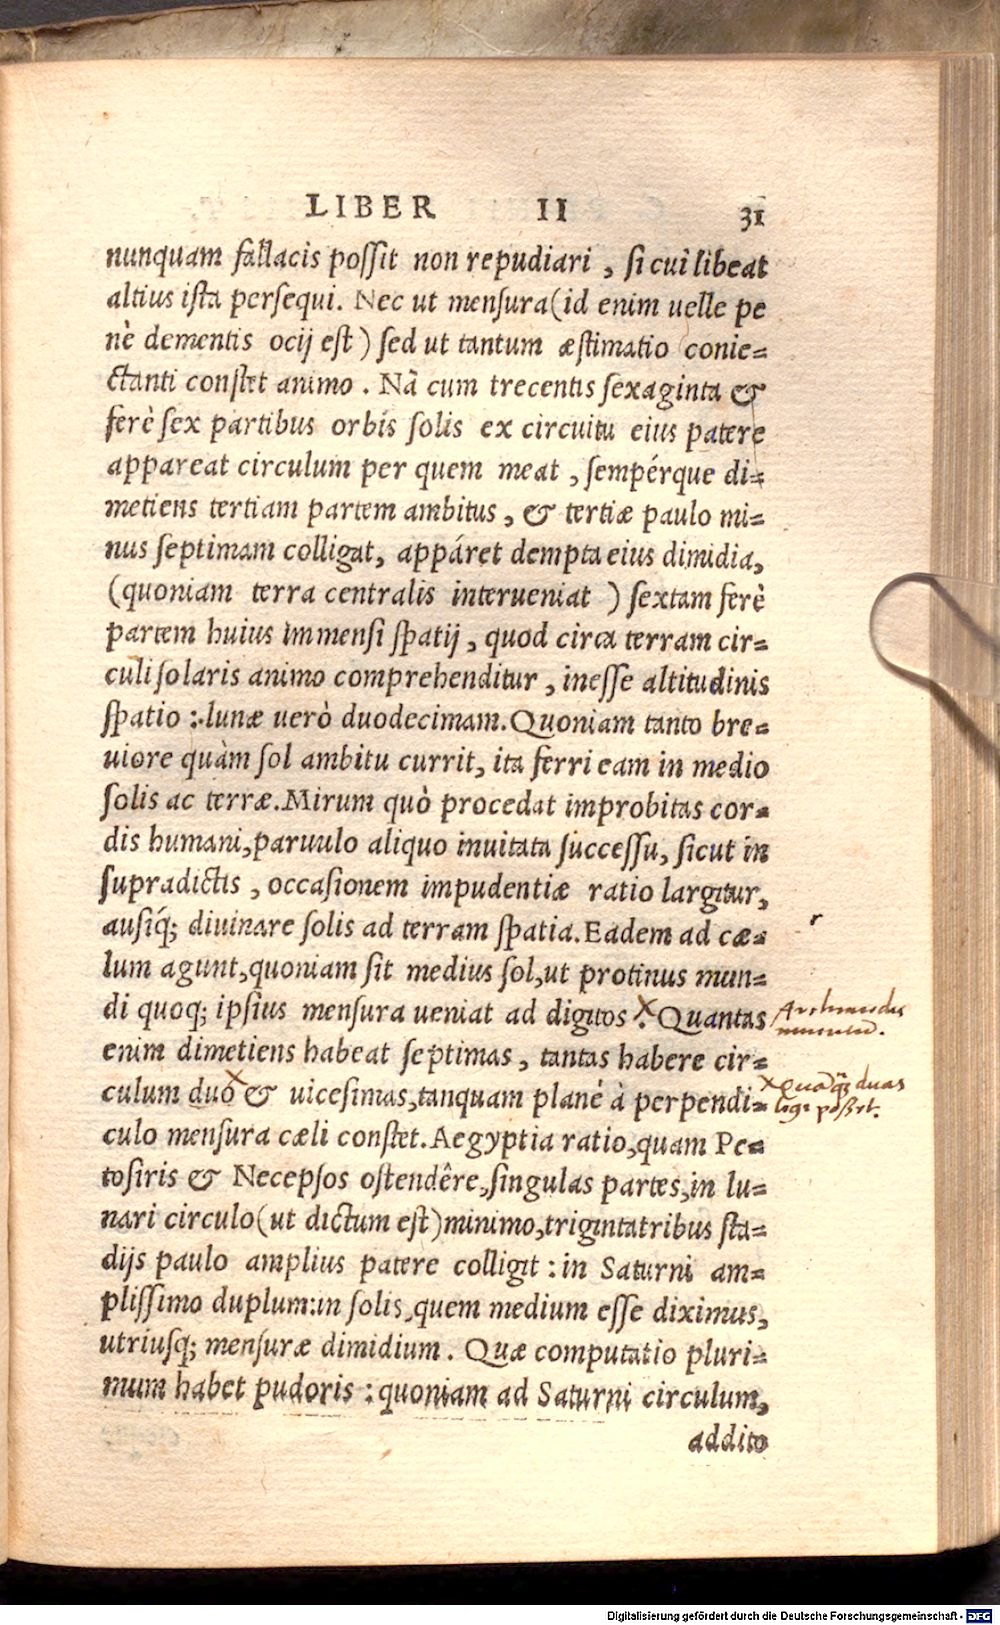 LIBER II 31
nunquam fallacis possit non repudiari, si cui libeat
altius ista persequi. Nec ut mensura (id enim uelle pe
nè dementis ocij est) sed ut tantum æstimatio conie=
ctanti constet animo. Nā cum trecentis sexaginta &
ferè sex partibus orbis solis ex circuitu eius patere
appareat circulum per quem meat, sempérque di=
metiens tertiam partem ambitus, & tertiæ paulo mi=
nus septimam colligat, appáret dempta eius dimidia,
(quoniam terra centralis interueniat) sextam ferè
partem huius immensi spatij, quod circa terram cir=
culi solaris animo comprehenditur, inesse altitudinis
spatio: lunæ uerò duodecimam. Quoniam tanto bre=
uiore quàm sol ambitu currit, ita ferri eam in medio
solis ac terræ. Mirum quò procedat improbitas cor=
dis humani, paruulo aliquo inuitata successu, sicut in
supradictis, occasionem impudentiæ ratio largitur,
ausiq́; diuinare solis ad terram spatia. Eadem ad cæ=
lum agunt, quoniam sit medius sol, ut protinus mun=
di quoq; ipsius mensura ueniat ad digitos. Quantas
enim dimetiens habeat septimas, tantas habere cir=
culum duo & uicesimas, tanquam planè à perpendi=
culo mensura cæli constet. Aegyptia ratio, quam Pe=
tosiris & Necepsos ostendêre, singulas partes, in lu=
nari circulo (ut dictum est) minimo, triginta tribus sta=
dijs paulo amplius patere colligit: in Saturni am=
plissimo duplum: in solis, quem medium esse diximus,
utriusq; mensuræ dimidium. Quæ computatio pluri=
mum habet pudoris: quoniam ad Saturni circulum,
addito
duas
Digitalisierung gefördert durch die Deutsche Forschungsgemeinschaft - DFG